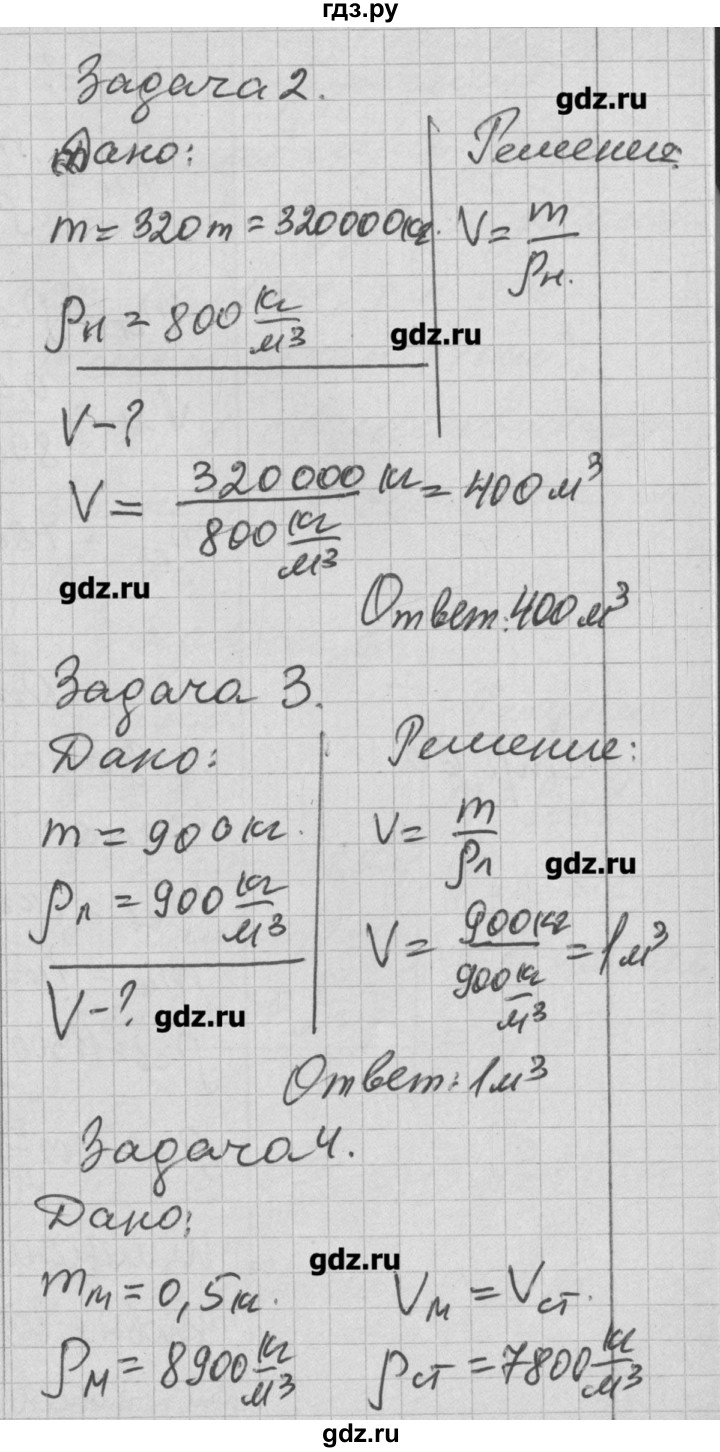 гдз.ру
Задача 2.
gdz.ru
Дано: Решение:
m = 320 т = 320000 кг. V = m/ρн.
ρн = 800 кг/м³
gdz.ru
V - ?
V = 320 000 кг / 800 кг/м³ = 400 м³
gdz.ru
Ответ: 400 м³
Задача 3.
Дано: Решение:
m = 900 кг. V = m/ρл
gdz.ru
ρл = 900 кг/м³ V = 900 кг / 900 кг/м³ = 1 м³
V - ? gdz.ru
Ответ: 1 м³
Задача 4.
Дано:
gdz.ru
mм = 0,5 кг. Vм = Vст.
ρм = 8900 кг/м³ ρст = 7800 кг/м³
gdz.ru